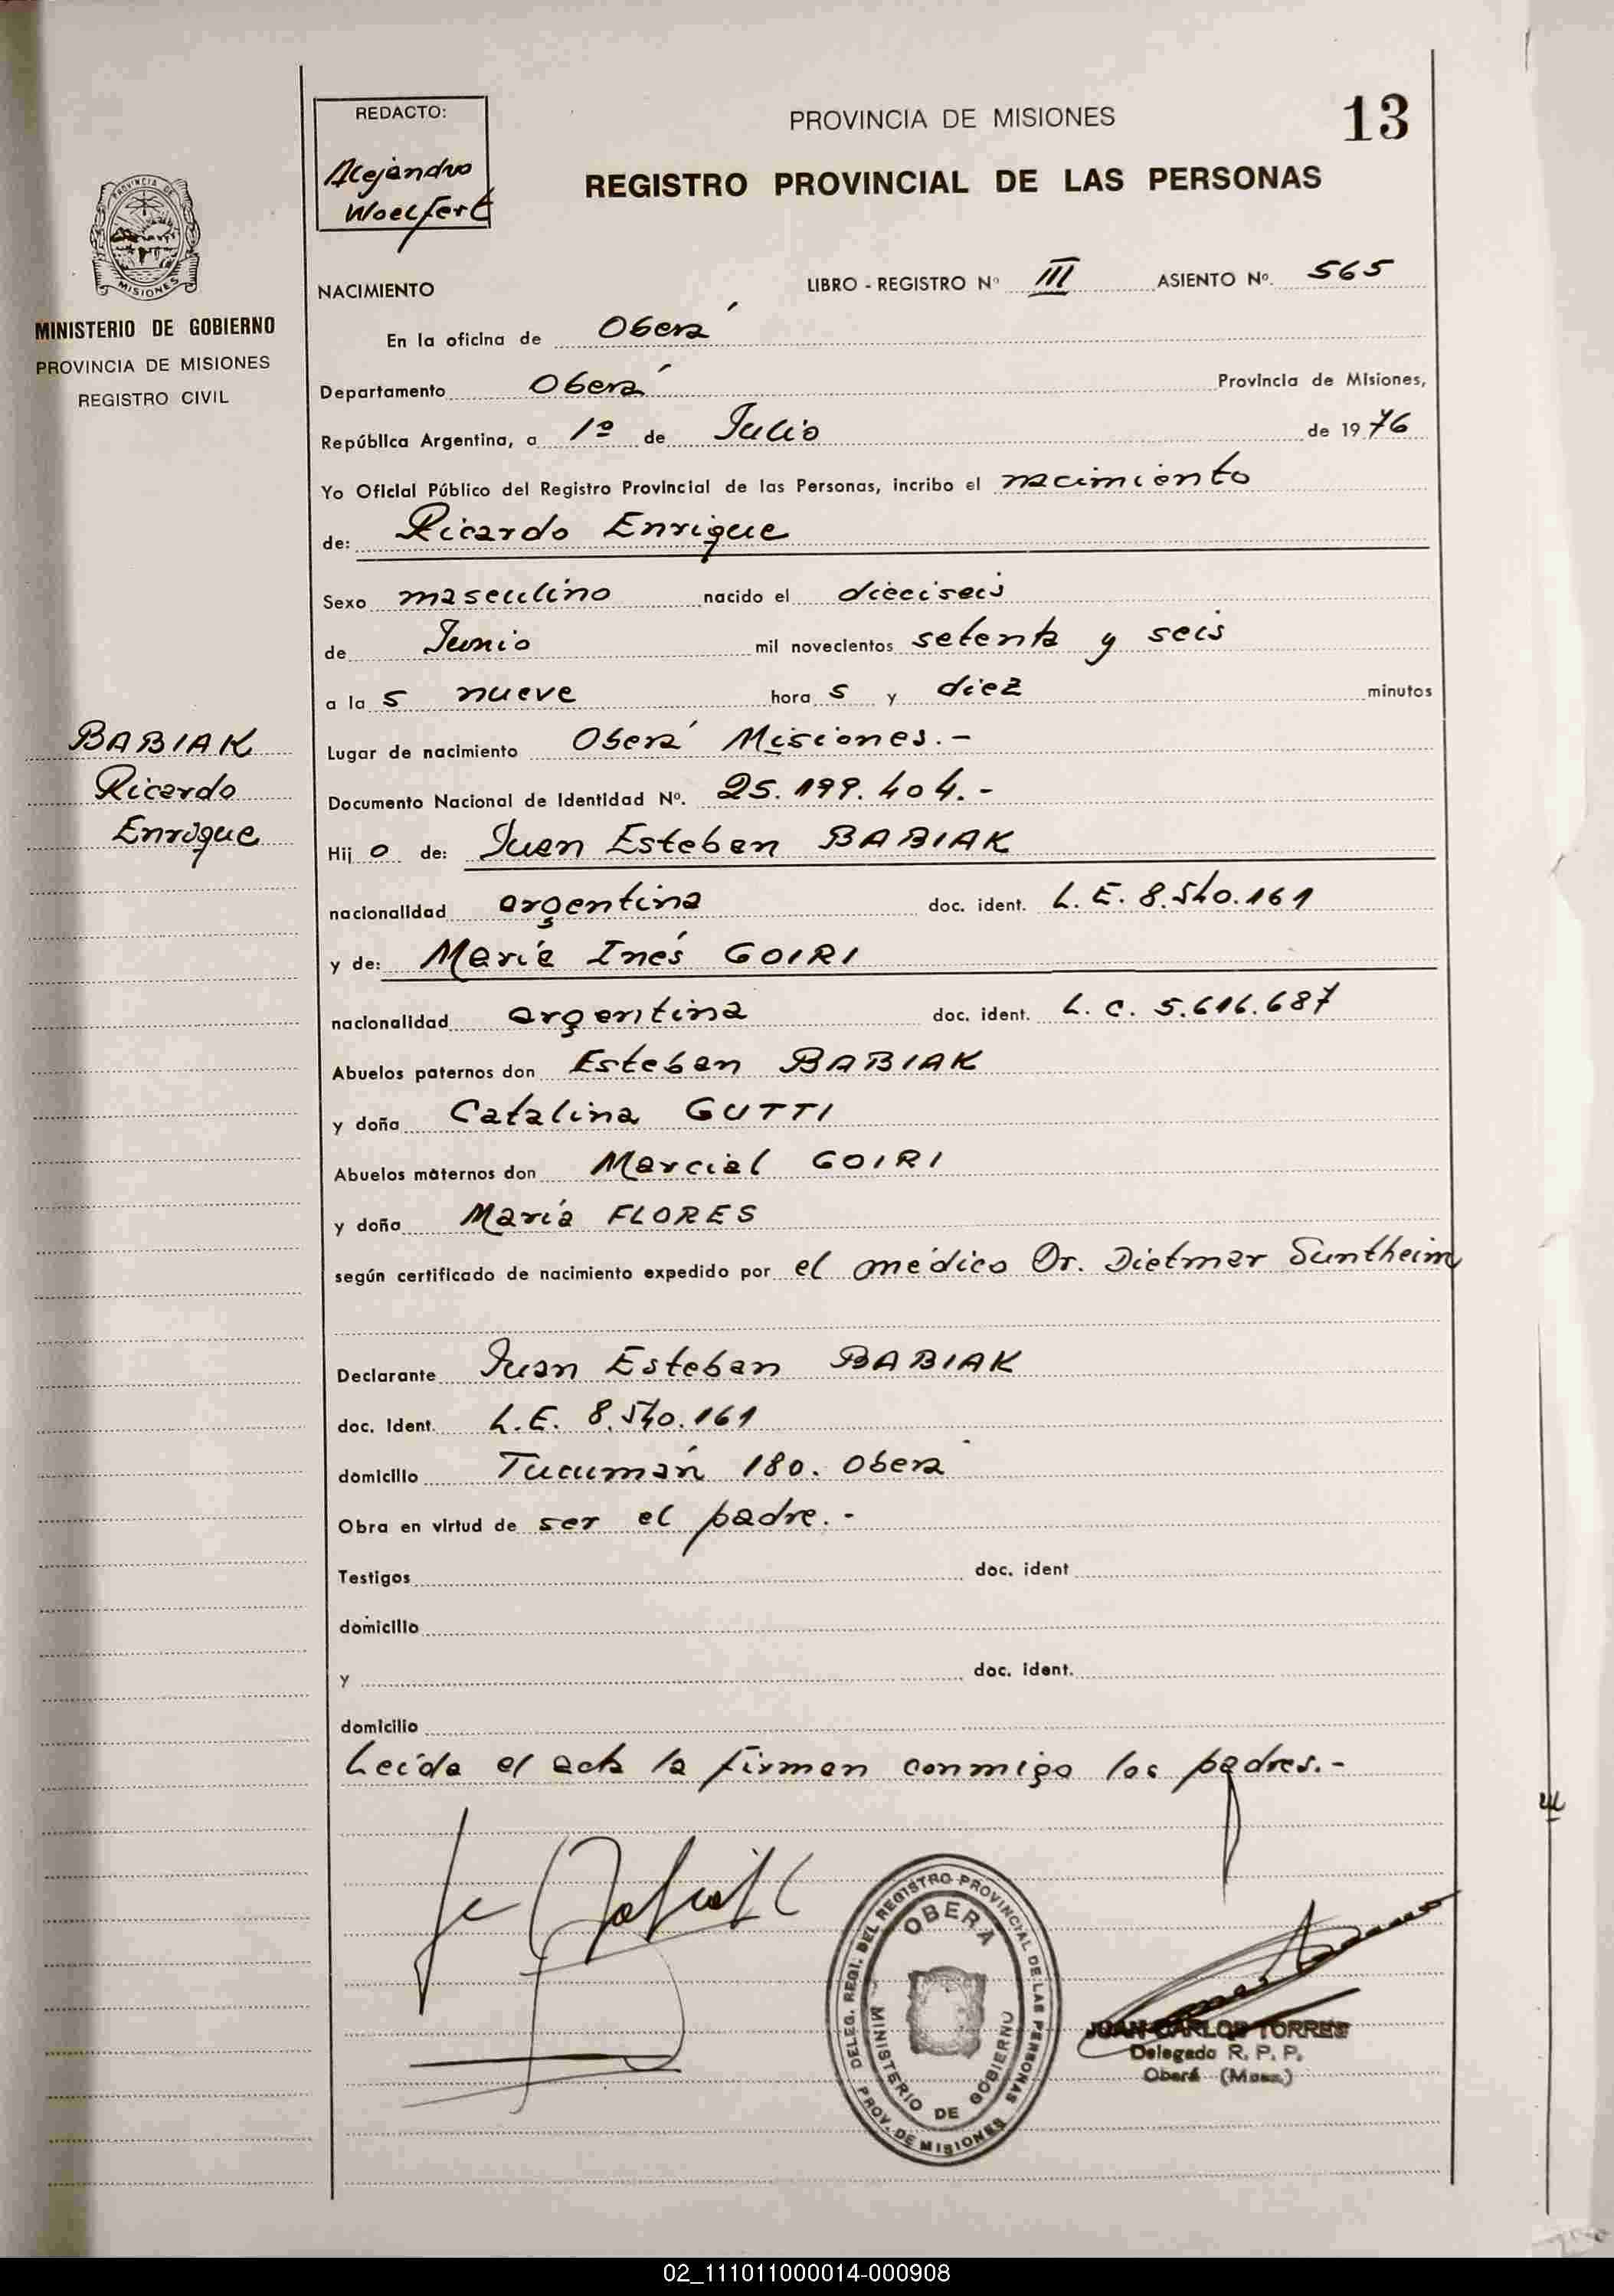 REDACTO:
Alejandro
Woelfert
PROVINCIA DE MISIONES
13
REGISTRO PROVINCIAL DE LAS PERSONAS
PROVINCIA DE
MISIONES
MINISTERIO DE GOBIERNO
PROVINCIA DE MISIONES
REGISTRO CIVIL
NACIMIENTO LIBRO - REGISTRO Nº III ASIENTO Nº. 565
En la oficina de Oberá
Departamento Oberá Provincia de Misiones,
República Argentina, a 1º de Julio de 1976
Yo Oficial Público del Registro Provincial de las Personas, incribo el nacimiento
de: Ricardo Enrique
Sexo masculino nacido el dieciseis
de Junio mil novecientos setenta y seis
a la s nueve hora s y diez minutos
BABIAK
Ricardo
Enrique
Lugar de nacimiento Oberá Misiones.-
Documento Nacional de Identidad Nº. 25.199.404.-
Hij o de: Juan Esteban BABIAK
nacionalidad argentina doc. ident. L.E. 8.540.161
y de: María Inés GOIRI
nacionalidad argentina doc. ident. L.C. 5.616.687
Abuelos paternos don Esteban BABIAK
y doña Catalina GUTTI
Abuelos maternos don Marcial GOIRI
y doña María FLORES
según certificado de nacimiento expedido por el médico Dr. Dietmar Suntheim
Declarante Juan Esteban BABIAK
doc. Ident. L.E. 8.540.161
domicilio Tucumán 180. Oberá
Obra en virtud de ser el padre.-
Testigos doc. ident
domicilio
y doc. ident.
domicilio
Leída el acta la firman conmigo los padres.-
DELEG. REGI. DEL REGISTRO PROVINCIAL DE LAS PERSONAS
PROV. DE MISIONES
OBERA
MINISTERIO DE GOBIERNO
JUAN CARLOS TORRES
Delegado R. P. P.
Oberá (Mnes.)
02_111011000014-000908